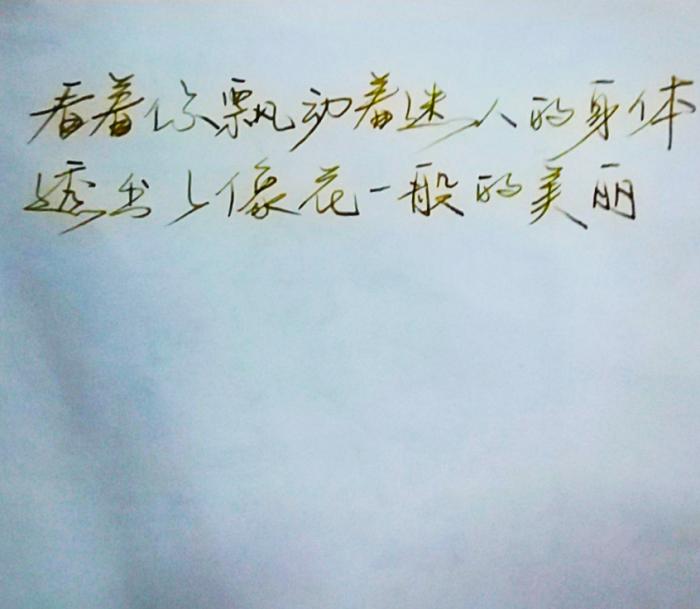 看着你飘动着迷人的身体
透出了像花一般的美丽